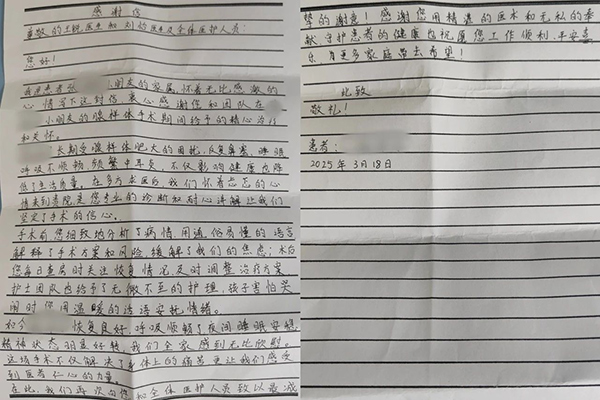 感谢信
尊敬的王晓医生和刘的医生及全体医护人员:
您好!
我是患者张 小朋友的家属,怀着无比感激的
心情写下这封信,衷心感谢您和团队在
小朋友的腺样体手术期间给予的精心治疗
和关怀。
长期受腺样体肥大的困扰,反复鼻塞、睡眠
呼吸不顺畅,频繁中耳炎,不仅影响健康也降
低了生活质量。在多方求医后,我们怀着忐忑的心
情来到贵院,是您专业的诊断和耐心讲解让我们
坚定了手术的信心。
手术前您细致地分析了病情用通俗易懂的语言
解释了手术方案和风险,缓解了我们的焦虑;术后
您每日查房时关注恢复情况及时调整治疗方案
护士团队也给予了无微不至的护理,孩子害怕哭
闹时您用温暖的话语安抚情绪。
如今 恢复良好,呼吸顺畅了夜间睡眠安稳,
精神状态明显好转,我们全家感到无比欣慰。
这场手术不仅解决了身体上的痛苦更让我们感受
到医者仁心的力量。
在此,我们再次向您和全体医护人员致以最诚
挚的谢意!感谢您用精湛的医术和无私的奉
献守护患者的健康也祝愿您工作顺利,平安喜
乐为更多家庭带去希望!
此致
敬礼!
患者:
2025年3月18日